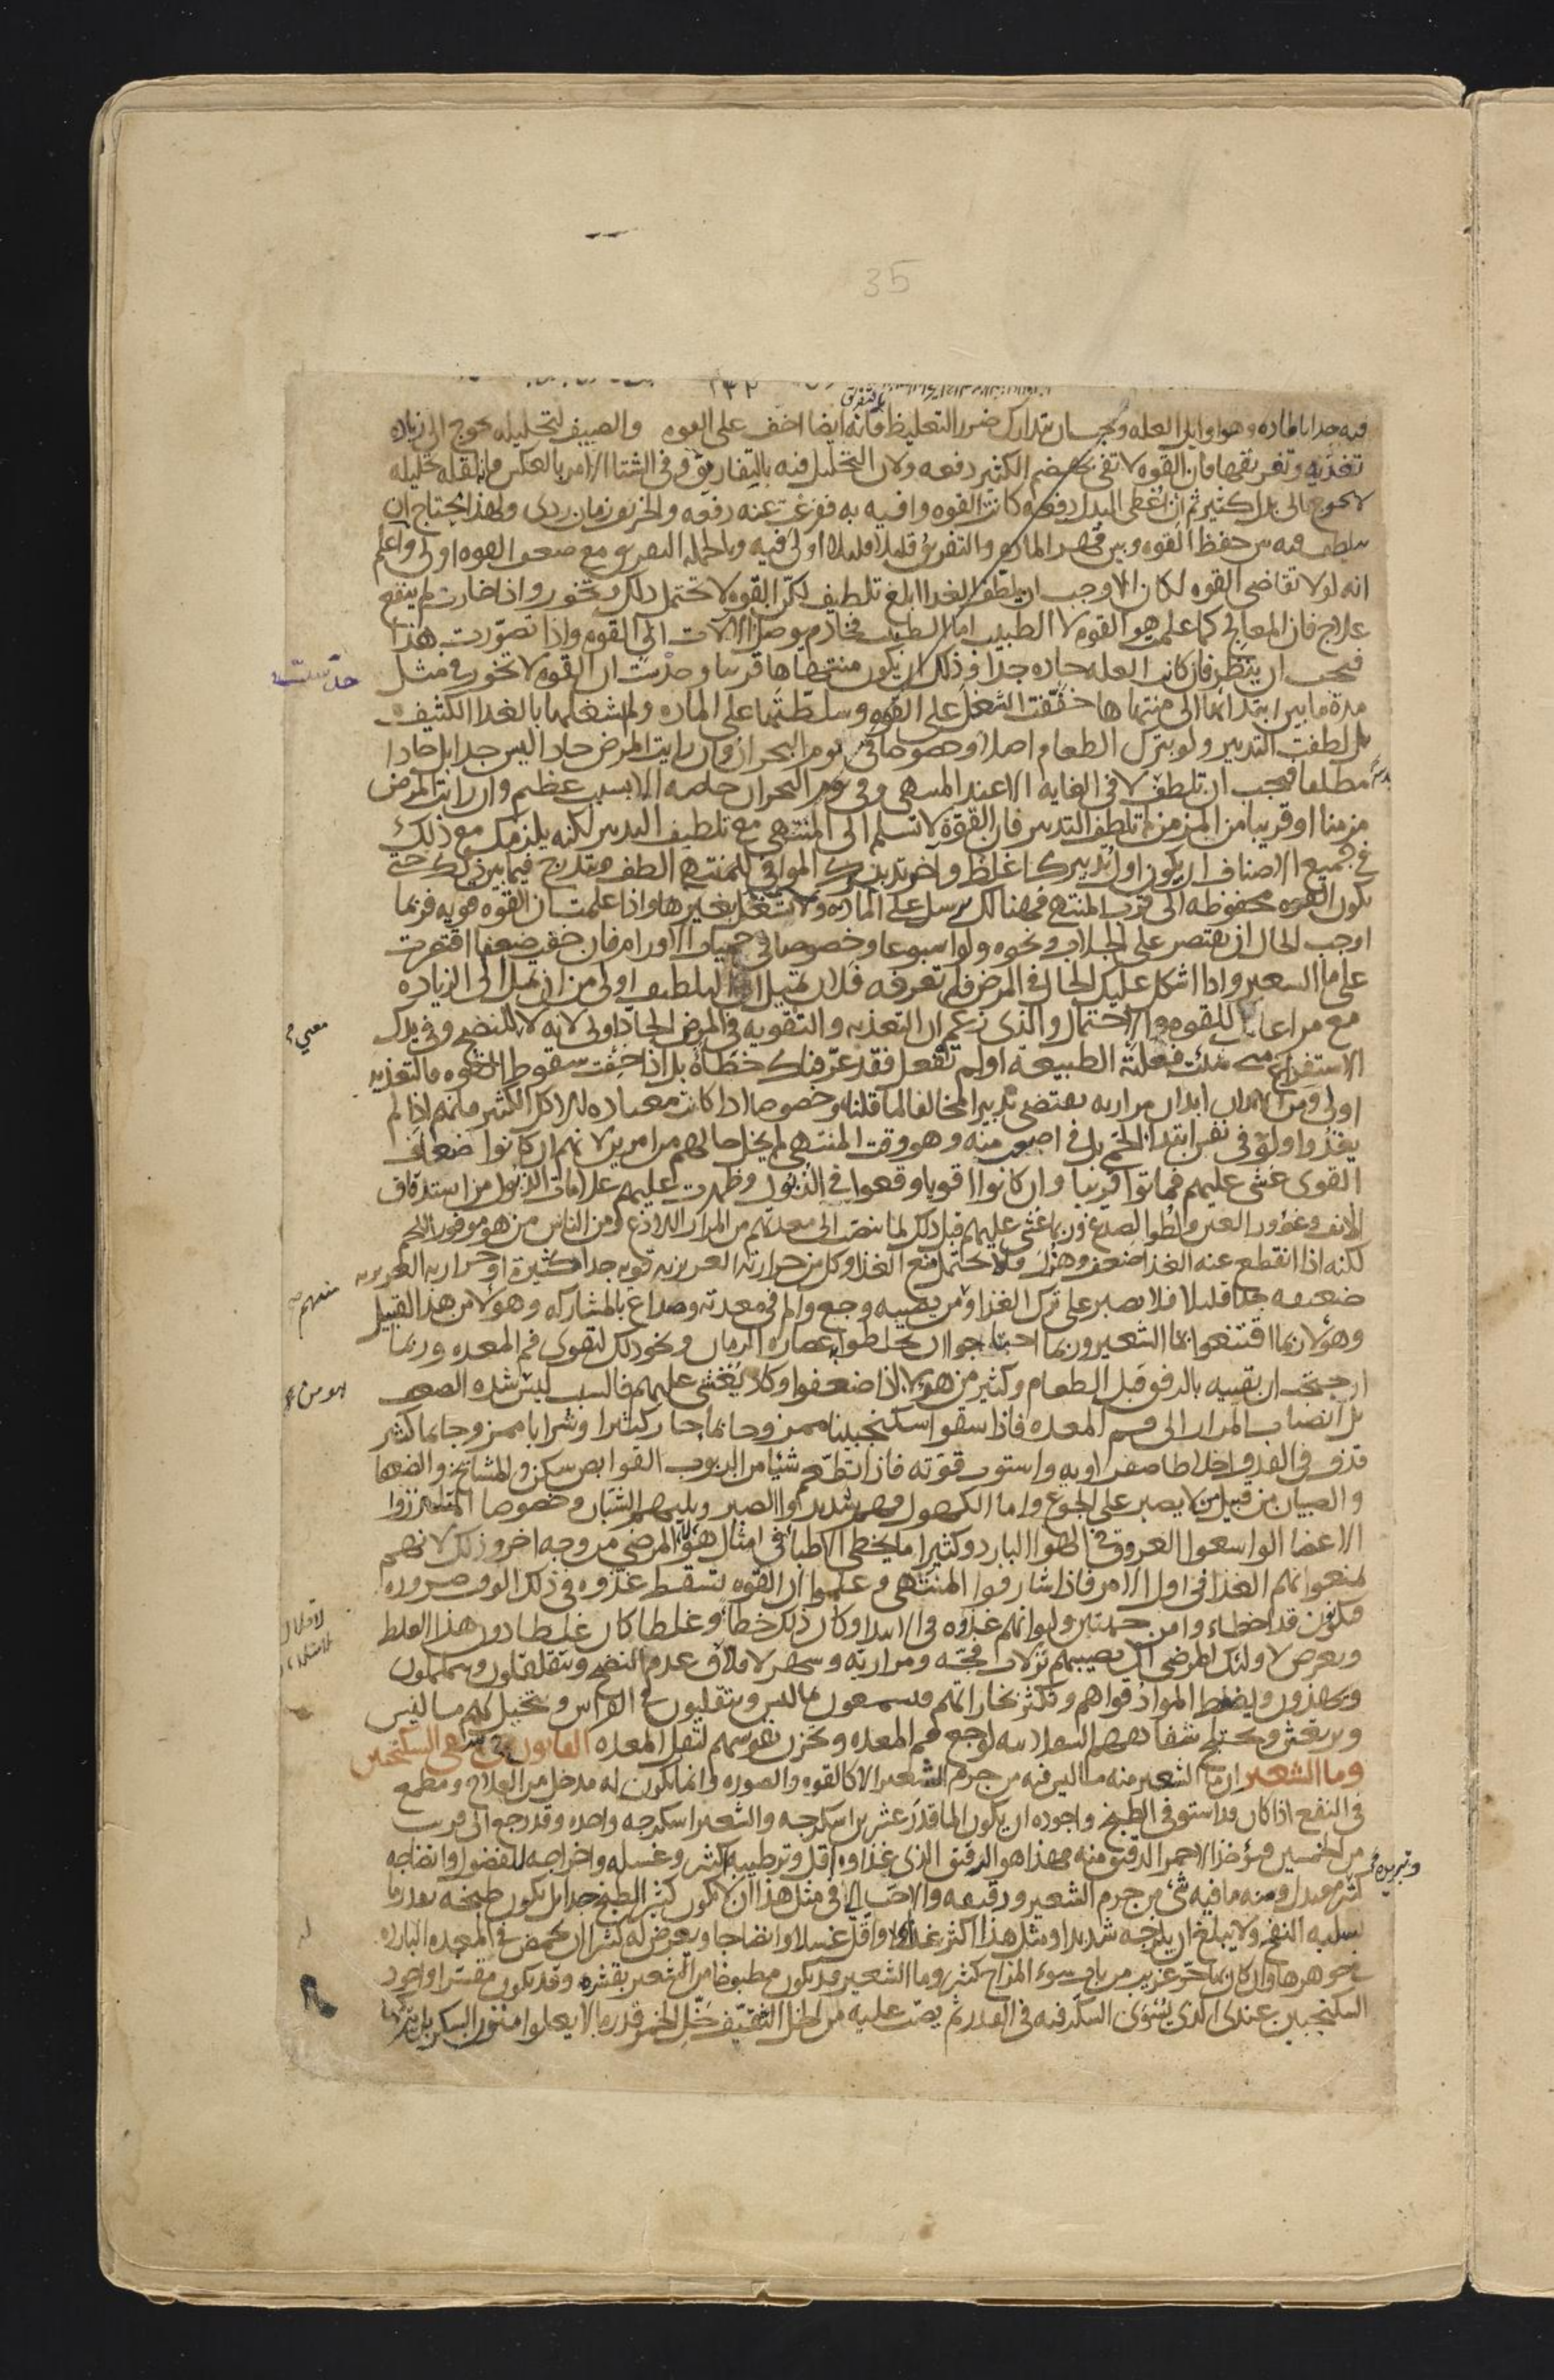 35
١٣٢
بالتفرق
فيه جدا بالماده وهو اوايل العله ويجب ان يتدارك ضرر التغليظ فانه ايضا اخف على القوه والصيف لتحليله يحوج الى زياده
تغذيه وتفريقها فان القوه لا تفي بهضم الكثير دفعه ولان التحليل فيه بالتفاريق وفي الشتا الامر بالعكس فان لقله تحليله
لا يحوج الى بدل كثير ثم ان اعطى البدل دفعه كانت القوه وافيه به ففرغت عنه دفعه والخريف زمان ردى ولهذا يحتاج ان
يتلطف فيه بين حفظ القوه وبين قهر الماده والتفريق قليلا قليلا اولى فيه وبالجمله التفريق مع ضعف القوه اولى واعلم
انه لولا تقاضى القوه لكان الاوجب ان يلطف الغدا ابلغ تلطيف لكن القوه لا تحتمل ذلك وتخور واذا خارت لم ينفع
علاج فان المعالج كما علمت هو القوه لا الطبيب اما الطبيب فخادم يوصل الالات الى القوه واذا تصورت هذا
فيجب ان ينظر فان كانت العله حاده جدا وذلك ان يكون منتهاها قريبا وحدست ان القوه لا تخور في مثل
حدست
مدة ما بين ابتدائها الى منتهاها خففت الشغل على القوه وسلطتها على الماده ولم تشغلها بالغدا الكثيف
بل لطفت التدبير ولو بترك الطعام اصلا وخصوصا في يوم البحران وان رايت المرض حادا ليس جدا بل حادا
مطلقا فيجب ان تلطف لا في الغايه الا عند المنتهى وفي يوم البحران خاصه الا بسبب عظيم وان رايت المرض
مزمنا او قريبا من المزمن لم تلطف التدبير فان القوة لا تسلم الى المنتهى مع تلطيف التدبير لكنه يلزمك مع ذلك
في جميع الاصناف ان يكون اول تدبيرك اغلظ واخر تدبيرك الموافي للمنتهى الطف وتتدرج فيما بين ذلك حتى
تكون القوه محفوظه الى قرب المنتهى فهنالك ترسل على الماده ولا تشغل بغيرها واذا علمت ان القوه قويه فربما
اوجب الحال ان يقتصر على الجلاب ونحوه ولو اسبوعا وخصوصا في حميات الاورام فان خفت ضعفا اقتصرت
على ما الشعير واذا اشكل عليك الحال في المرض فلم تعرفه فلان تميل الى التلطيف اولى من ان تميل الى الزياده
مع مراعاة للقوه والاحتمال والذى زعم ان التغذيه والتقويه في المرض الحاد اولى لانه لا للنضج وفي يدك
الاستفراغ متى شئت فعلته الطبيعه اولم تفعل فقد عرفناك خطاه بل اذا خفت سقوط القوه فالتغذيه
اولى ومن الابدان ابدان مراريه يقتضى تدبير المخالف لما قلناه وخصوصا اذا كانت معتاده للاكل الكثير فانهم اذا لم
يغذوا ولو في نفس ابتدا الحمى بل في اصعب منه وهو وقت المنتهى لم يخل حالهم من امرين لانهم ان كانوا ضعاف
القوى غشى عليهم فماتوا قريبا وان كانوا اقويا وقعوا في الذبول وظهرت عليهم علامات الذبول من استدقاق
الانف وغؤور العين ولطو الصدغ وربما غشى عليهم قبل ذلك لما ينصب الى معدتهم من المرار اللاذع ومن الناس من هو موفور اللحم
لكنه اذا انقطع عنه الغذا ضعف وهزل فلا يحتمل منع الغذا وكل من حرارته الغريزيه قويه جدا كثيرة او حرارته الغريزيه
ضعيفه جدا قليلا فلا يصبر على ترك الغذا ومن يصيبه وجع والم في معدته وصداع بالمشاركه وهولا من هذا القبيل
منهم
وهولا ربما اقتنعوا بما الشعير وربما احتاجوا ان يخلطوا به عصاره الرمان ونحو ذلك لتقوى فم المعده وربما
ان يقييه بالرفق قبل الطعام وكثير من هولا اذا ضعفوا وكاد يغشى عليهم فالسبب ليس شده الضعف
بل انصباب المرار الى فم المعده فاذا سقوا سكنجبينا ممزوجا بما حار كثيرا وشرابا ممزوجا بما كثير
قذف في القدر اخلاطا صفراويه واستوت قوته فاذا تطعم شيا من الربوب القوابض سكن والمشايخ والضعفا
والصبيان من قبيل من لا يصبر على الجوع واما الكهول فهم شديدوا الصبر ويليهم الشبان وخصوصا المتلززوا
الاعضا الواسعوا العروق في الهوا البارد وكثيرا ما يخطى الاطبا في امثال هولا المرضى من وجه اخر وذلك لانهم
يمنعوانهم الغذا في اول الامر فاذا شارفوا المنتهى وعلموا ان القوه تسقط غذوه في ذلك الوقت ضروره
فيكونون قد اخطاوا من جهتين ولو انهم غذوه في الابتدا وكان ذلك خطا وغلطا كان غلطا دون هذا الغلط
ويعرض لاولئك المرضى ان يصيبهم نزلات فجه ومراريه وسهر لاقلاق عدم النضج ويتقلقلون ويتململون
ويهذون ويضغط المواد قواهم وتكثر بخاراتهم فيسمعون ما ليس ويتقلبون في الفراش ويتخيل لهم ما ليس
وترتعش وتختلج شفاههم السفلانيه لوجع فم المعده وتحزن نفوسهم لثقل المعده القانون في سقى السكنجبين
وما الشعير ان ما الشعير منه ما ليس فيه من جرم الشعير الا كالقوه والصوره وانما يكون له مدخل من العلاج ومطمع
في النفع اذا كان قد استوفى الطبخ واجوده ان يكون الما قدر عشرين اسكرجه والشعير اسكرجه واحده وقد رجع الى قريب
من الخمسين ويؤخذ الاحمر الرقيق منه فهذا هو الرقيق الذى غذاوه اقل وترطيبه كثير وغسله واخراجه للفضول وانضاجه
وتبريده
كثير معتدل ومنه ما فيه شى من جرم الشعير ودقيقه والاحب الى في مثل هذا ان لا يكون كثير الطبخ جدا بل يكون طبخه بقدر ما
يسلبه النفخ ولا يبلغ ان يلزجه شديدا ومثل هذا اكثر غذاء واقل غسلا وانضاجا ويعرض له كثيرا ان يحمض في المعده البارده
في جوهرها وان كان بها حر غريب من باب سوء المزاج كثير وما الشعير قد يكون مطبوخا من الشعير بقشره وقد يكون مقشرا واجود
السكنجبين عندى الذى يسوى السكر فيه في القدر ثم يصب عليه من الخل الثقيف خل الخمر قدر ما لا يعلوا متون السكر بل يتركها